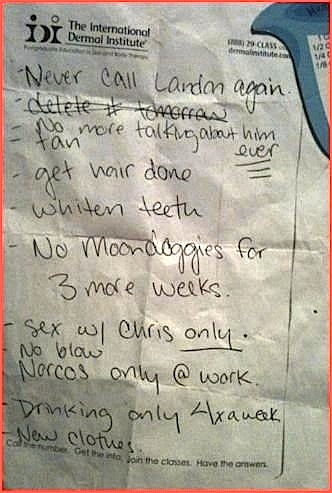 The International
Dermal Institute
Postgraduate Education in Skin and Body Therapy
(888) 29-CLASS
dermalinstitute.com
- Never call Landon again.
- delete # tomorrow
- No more talking about him
ever
- tan
- get hair done
- whiten teeth
- No Moondoggies for
3 more weeks.
- sex w/ Chris only.
- No blow
Narcos only @ work.
- Drinking only 4x a week
- New clothes.
Call the number. Get the info. Join the classes. Have the answers.